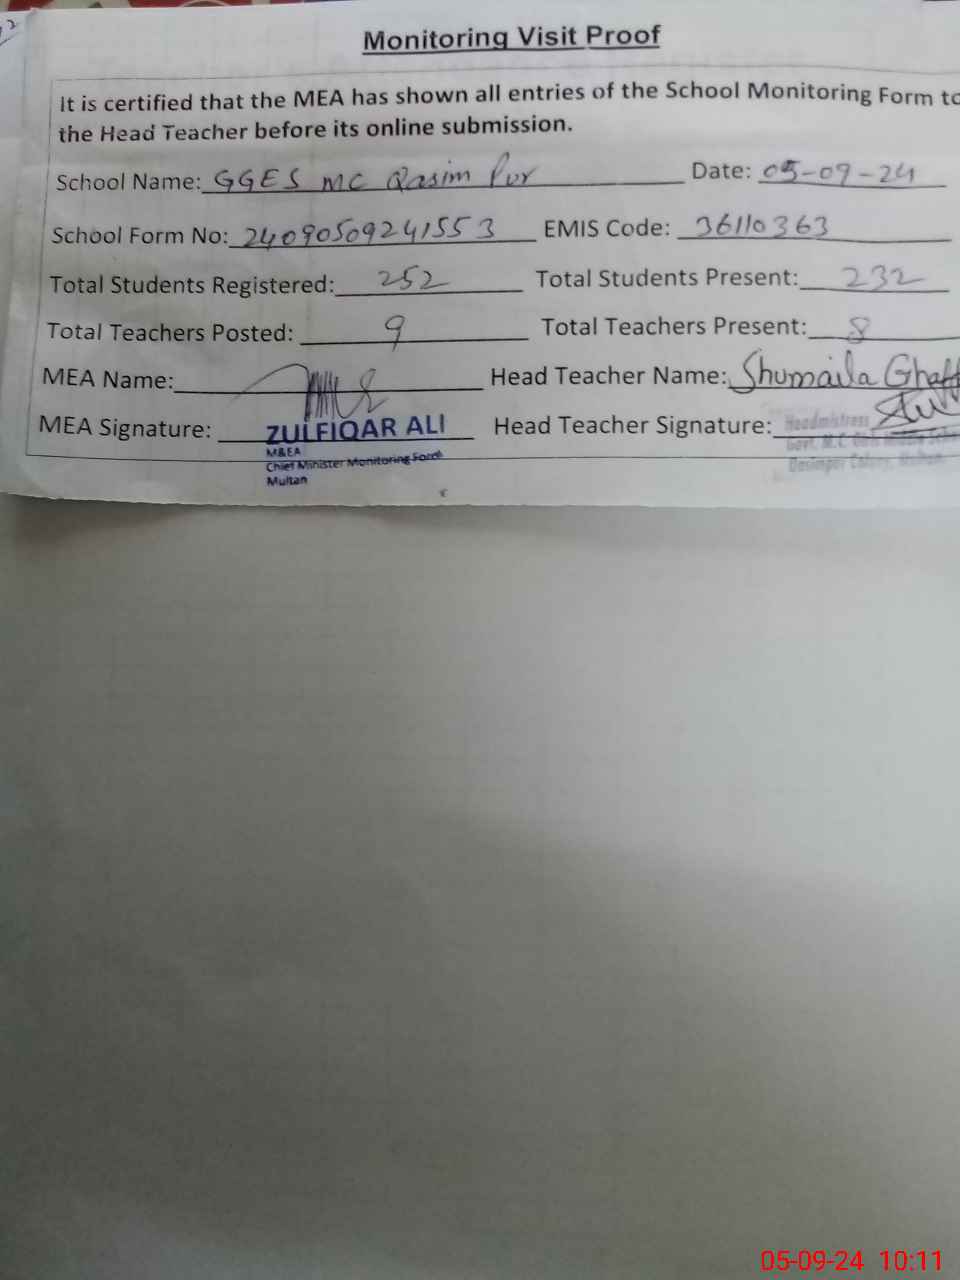 Monitoring Visit Proof
It is certified that the MEA has shown all entries of the School Monitoring Form to
the Head Teacher before its online submission.
School Name: GGES MC Qasim Pur Date: 05-09-24
School Form No: 24090509241553 EMIS Code: 36110363
Total Students Registered: 252 Total Students Present: 232
Total Teachers Posted: 9 Total Teachers Present: 8
MEA Name: Head Teacher Name: Shumaila Ghaff
MEA Signature: ZULFIQAR ALI Head Teacher Signature: Headmistress
M&EA
Chief Minister Monitoring Force
Multan
Govt. M.C. Girls Middle Scho
Qasimpur Colony, Multan.
05-09-24 10:11